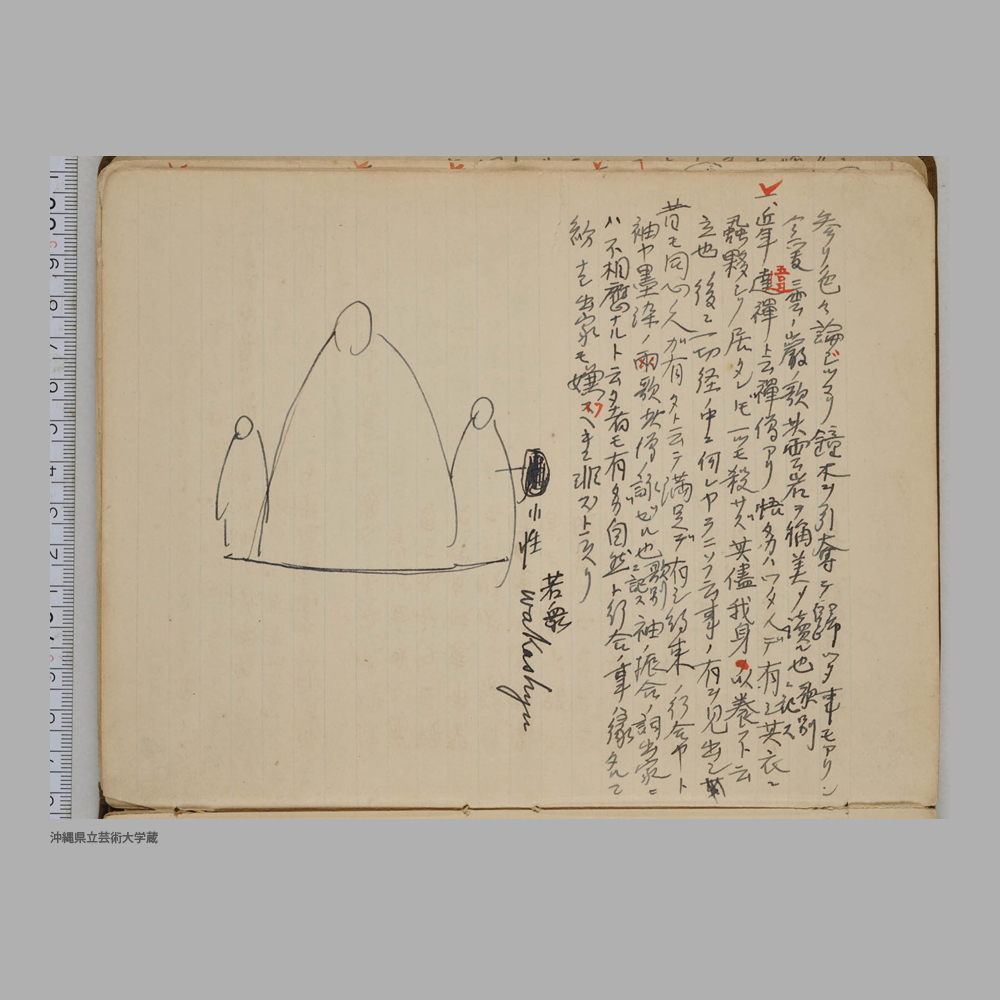 参リ色々論ジツヽ鐘木ヲ引奪テ帰ツタ事モアリシ
雲巌ノ歌其雲岩ヲ稱美タ讀也歌別ニ記ス
一、近年達道禪上云禪僧アリ 悟多ハツタ人デ有シ其衣ニ
蟲夥シク居タレトモ一ツモ殺サズ其儘我身ヲ以養フト云
立也 後ニ一切経ノ中ニ何レヤラニソフ云事ノ有ヲ見出シ
昔モ同心ノ人ガ有タト云テ満足デ有シ約束ノ行合ヤト
袖ヤ墨染ノ歌其僧ノ詠ゼル也歌別ニ記ス袖ノ振合ノ詞出家ニ
ハ不相應ナルト云タ者モ有シ多自然ト行合ノ事ノ縁タルニテ
紛モ出家モ嫌フヘキニ非ストナリ
小性
若衆
wakashyu
沖縄県立芸術大学蔵